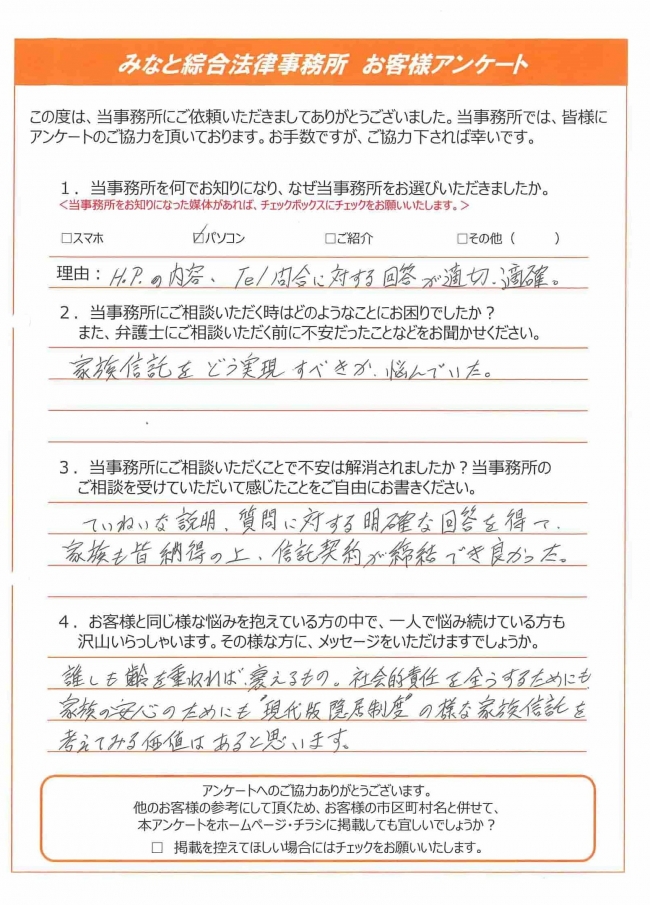 みなと綜合法律事務所 お客様アンケート
この度は、当事務所にご依頼いただきましてありがとうございました。当事務所では、皆様に
アンケートのご協力を頂いております。お手数ですが、ご協力下されば幸いです。
1．当事務所を何でお知りになり、なぜ当事務所をお選びいただきましたか。
＜当事務所をお知りになった媒体があれば、チェックボックスにチェックをお願いいたします。＞
□スマホ ☑パソコン □ご紹介 □その他（ ）
理由：H.P.の内容、Tel問合に対する回答が適切、適確。
2．当事務所にご相談いただく時はどのようなことにお困りでしたか？
また、弁護士にご相談いただく前に不安だったことなどをお聞かせください。
家族信託をどう実現すべきか、悩んでいた。
3．当事務所にご相談いただくことで不安は解消されましたか？当事務所の
ご相談を受けていただいて感じたことをご自由にお書きください。
ていねいな説明、質問に対する明確な回答を得て、
家族も皆納得の上、信託契約が締結でき良かった。
4．お客様と同じ様な悩みを抱えている方の中で、一人で悩み続けている方も
沢山いらっしゃいます。その様な方に、メッセージをいただけますでしょうか。
誰しも齢を重ねれば、衰えるもの。社会的責任を全うするためにも
家族の安心のためにも"現代版隠居制度"の様な家族信託を
考えてみる価値はあると思います。
アンケートへのご協力ありがとうございます。
他のお客様の参考にして頂くため、お客様の市区町村名と併せて、
本アンケートをホームページ・チラシに掲載しても宜しいでしょうか？
□ 掲載を控えてほしい場合にはチェックをお願いいたします。